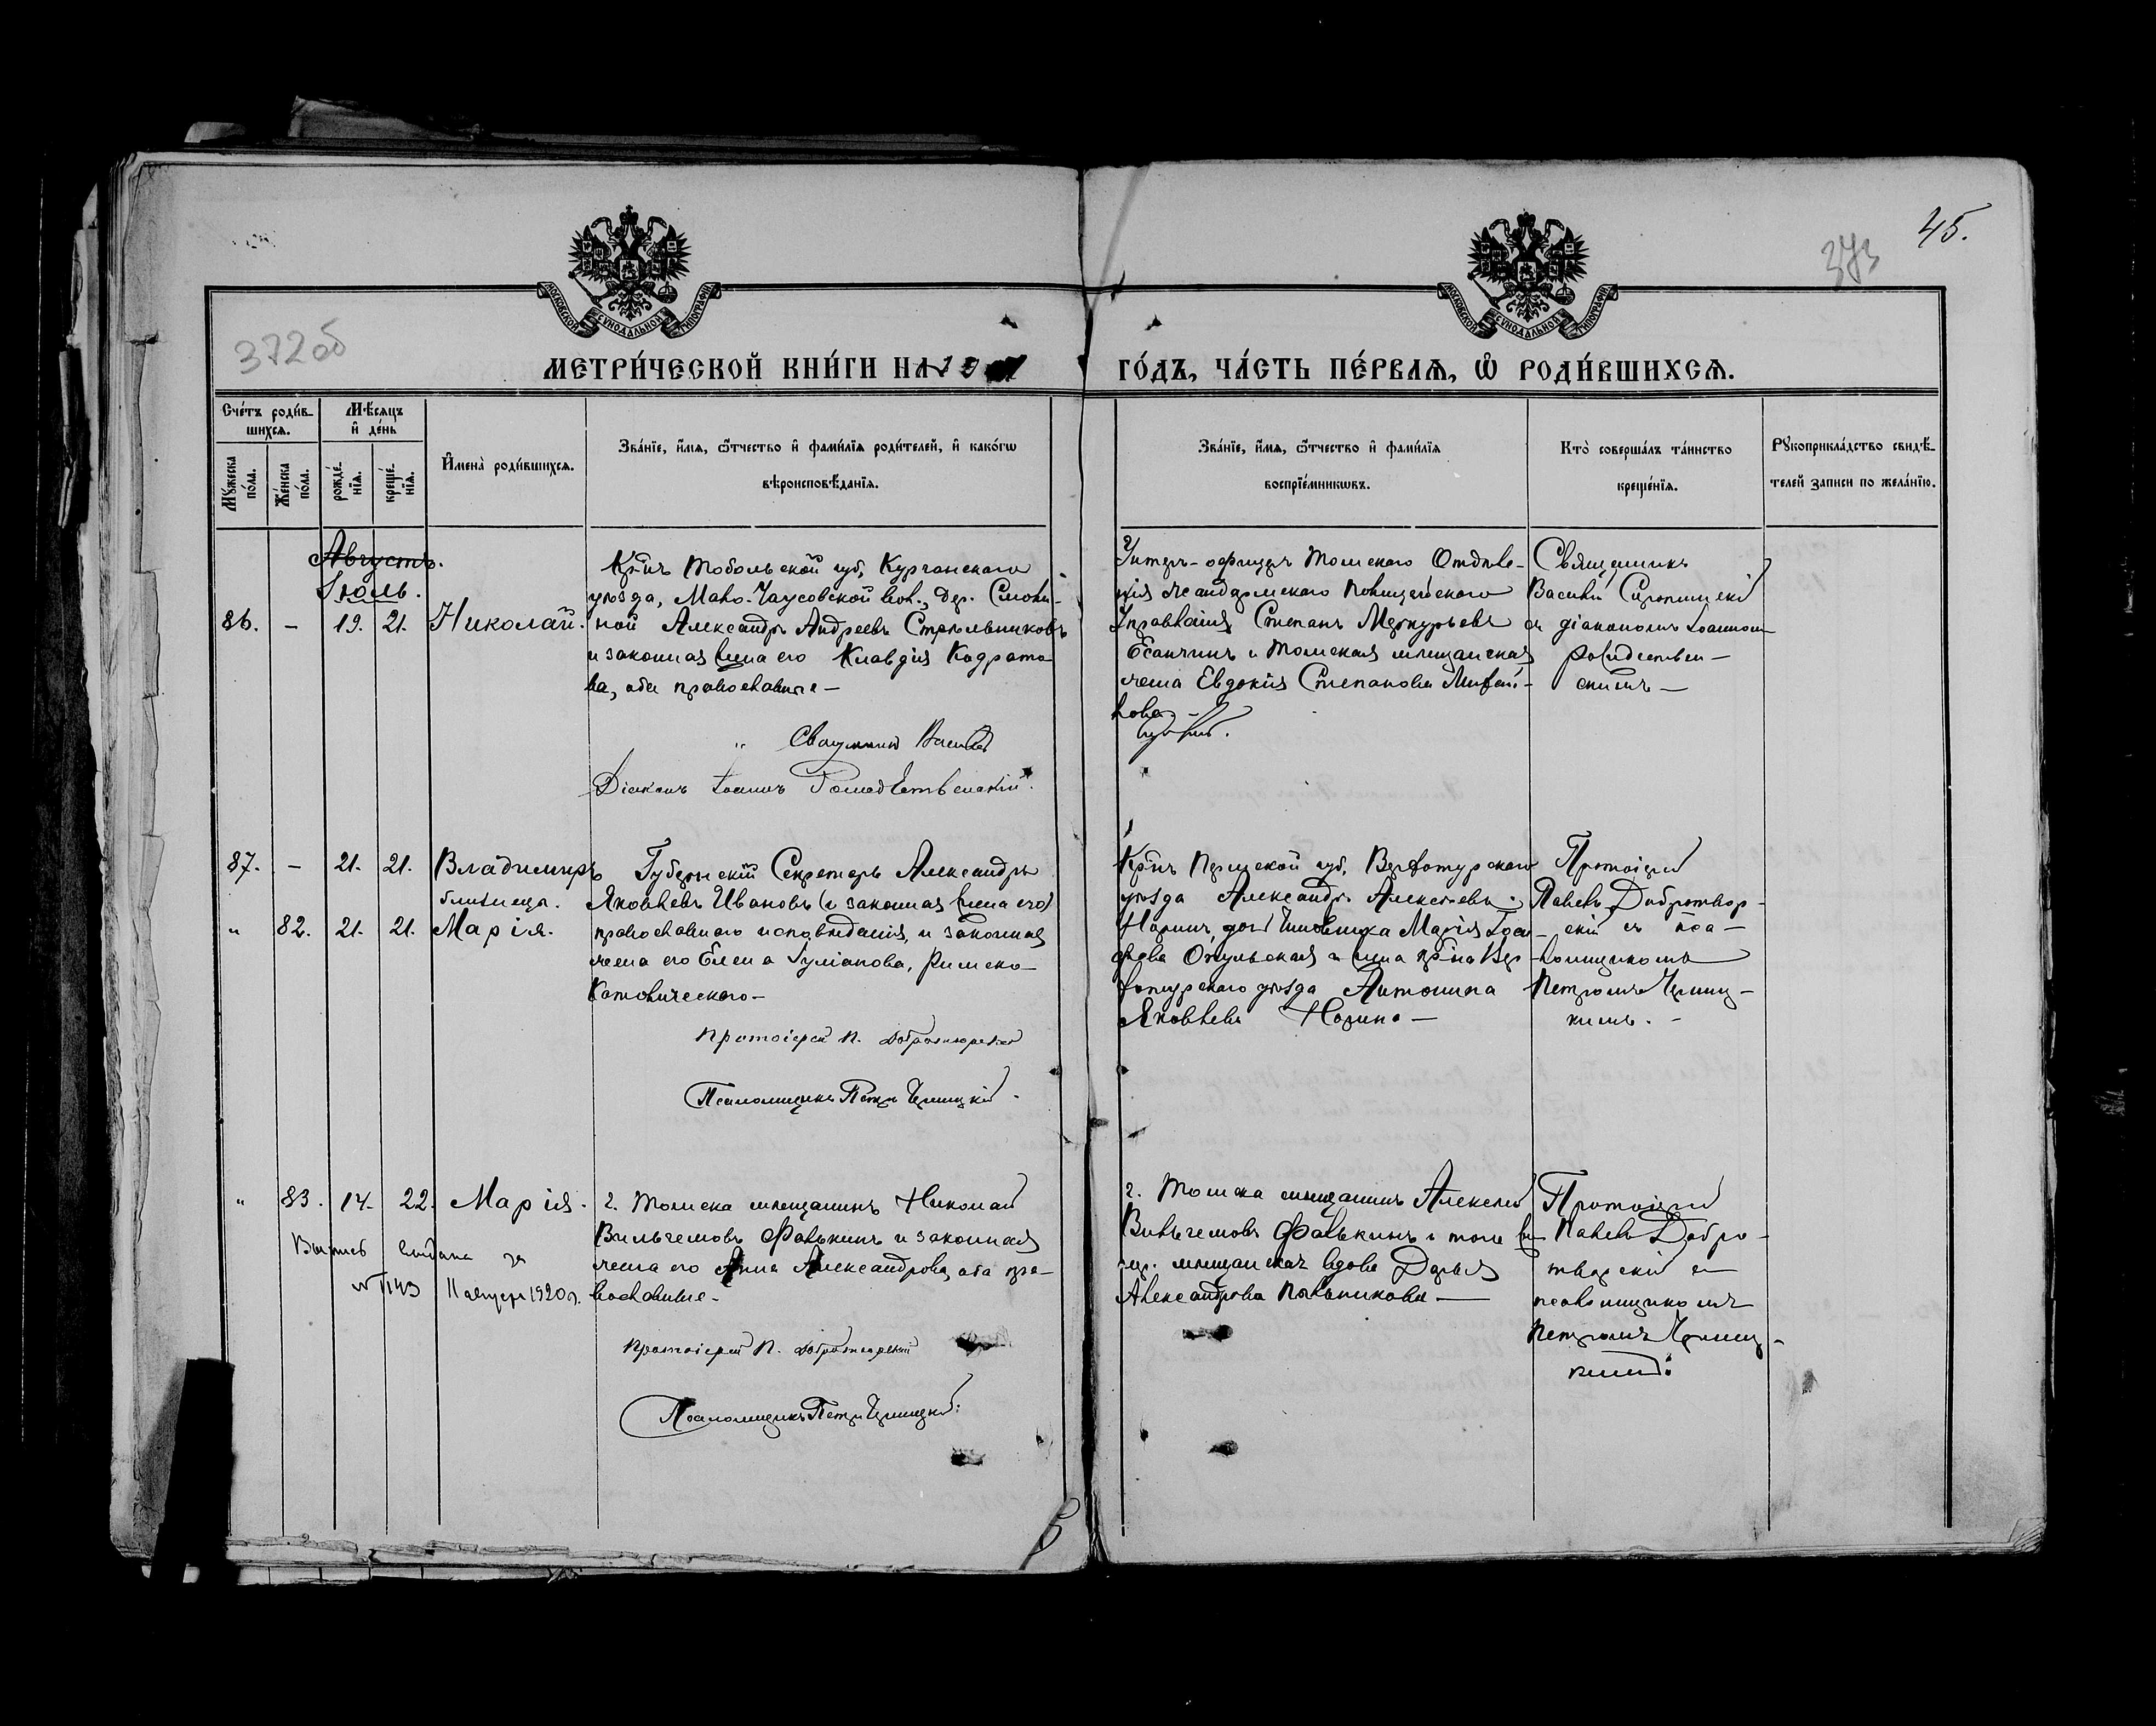 45.
373
372об
МОСКОВСКОЙ СѴНОДАЛЬНОЙ ТИПОГРАФІИ
МОСКОВСКОЙ СѴНОДАЛЬНОЙ ТИПОГРАФІИ
МЕТРИ́ЧЕСКОЙ КНИ́ГИ НА 19
ГО́ДЪ, ЧА́СТЬ ПЕ́РВАѦ, Ѡ҆ РОДИ́ВШИХСѦ.
Сче́тъ роди́в-
шихсѧ.
Мѣ́сѧцъ
и҆ де́нь
Мꙋ́жеска
по́ла.
Же́нска
по́ла.
рожде́-
нїѧ.
креще́-
нїѧ.
И҆мена̀ роди́вшихсѧ.
Зва́нїе, и҆́мѧ, ѻ҆́тчество и҆ фами́лїѧ роди́телей, и҆ како́гѡ
вѣроисповѣ́данїѧ.
Зва́нїе, и҆́мѧ, ѻ҆́тчество и҆ фами́лїѧ
воспрїе́мникѡвъ.
Кто̀ соверша́лъ та́инство
креще́нїѧ.
Рꙋкоприкла́дство свидѣ́-
телей записи по жела́нїю.
Августъ.
Іюль.
86. – 19. 21. Николай.
Кр-нъ Тобольской губ, Курганскаго
уѣзда, Мало-Чаусовской вол., дер. Смоли-
ной Александръ Андреевъ Стрѣльниковъ
и законная жена его Клавдія Кодрато
ва, оба православные –
Священникъ Василій
Діаконъ Іоаннъ Рождественскій.
Унтеръ-офицеръ Томскаго Отдѣле-
нія жандармскаго Полицейскаго
Управленія Степанъ Меркурьевъ
Есанчинъ и Томская мѣщанская
жена Евдокія Степанова Михай-
лова. –
Священникъ
Василій Сиротинскій
съ діакономъ Іоанном
Рождествен–
скимъ –
87. – 21. 21. Владимиръ
близнеца.
„ 82. 21. 21. Марія.
Губернскій Секретарь Александръ
Яковлевъ Ивановъ (и законная жена его)
православнаго исповѣданія, и законная
жена его Елена Іуліанова, Римско–
Католическаго –
Протоіерей П. Добротворскій
Псаломщикъ Петръ Черницкій.
Кр-нъ Пермской губ, Верхотурскаго
уѣзда Александръ Алексѣевъ
Норинъ, дочь Чиновника Марія Іоси-
фова Окульская и жена кр-на Вер
хотурскаго уѣзда Антонина
Яковлева Норина –
Протоіерей
Павелъ Добротвор-
скій съ пса–
ломщикомъ
Петромъ Черниц–
кимъ. –
„ 83. 14. 22. Марія.
Выпись выдана за
№ 1143 11 августа 1920 г.
г. Томска мѣщанинъ Николай
Вильгелмовъ Фалькинъ и законная
жена его Анна Александрова, оба пра–
вославные –
Протоіерей П. Добротворскій
Псаломщикъ Петръ Черницкій.
г. Томска мѣщанинъ Алексѣй
Вильгелмовъ Фалькинъ и того же
гор. мѣщанская вдова Дарья
Александрова Полыникова –
Протоіерей
Павелъ Добро-
творскій съ
псаломщикомъ
Петромъ Черниц-
кимъ.